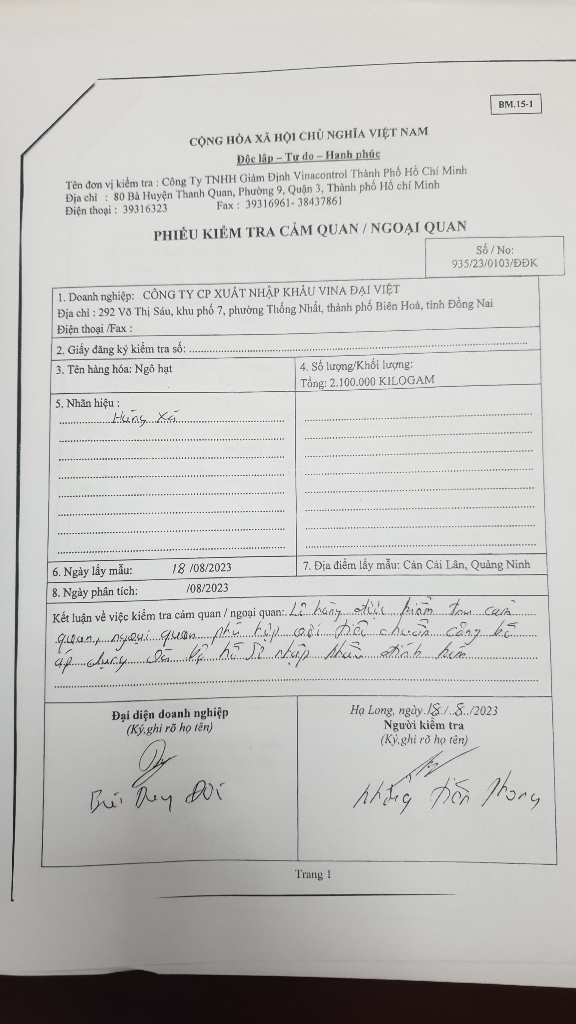 BM.15-1
CỘNG HÒA XÃ HỘI CHỦ NGHĨA VIỆT NAM
Độc lập – Tự do – Hạnh phúc
Tên đơn vị kiểm tra : Công Ty TNHH Giám Định Vinacontrol Thành Phố Hồ Chí Minh
Địa chỉ : 80 Bà Huyện Thanh Quan, Phường 9, Quận 3, Thành phố Hồ chí Minh
Điện thoại : 39316323 Fax : 39316961- 38437861
PHIẾU KIỂM TRA CẢM QUAN / NGOẠI QUAN
Số / No:
935/23/0103/ĐĐK
1. Doanh nghiệp: CÔNG TY CP XUẤT NHẬP KHẨU VINA ĐẠI VIỆT
Địa chỉ : 292 Võ Thị Sáu, khu phố 7, phường Thống Nhất, thành phố Biên Hoà, tỉnh Đồng Nai
Điện thoại /Fax :
2. Giấy đăng ký kiểm tra số:
3. Tên hàng hóa: Ngô hạt
4. Số lượng/Khối lượng:
Tổng: 2.100.000 KILOGAM
5. Nhãn hiệu :
Hàng Xá
6. Ngày lấy mẫu: 18 /08/2023
7. Địa điểm lấy mẫu: Cản Cái Lân, Quảng Ninh
8. Ngày phân tích: /08/2023
Kết luận về việc kiểm tra cảm quan / ngoại quan: Lô hàng được kiểm tra cảm
quan, ngoại quan phù hợp với tiêu chuẩn công bố
áp dụng và bộ hồ sơ nhập khẩu đính kèm
Đại diện doanh nghiệp
(Ký,ghi rõ họ tên)
Bùi Duy Đới
Hạ Long, ngày 18/ 8 /2023
Người kiểm tra
(Ký,ghi rõ họ tên)
Tiến Phong
Trang 1